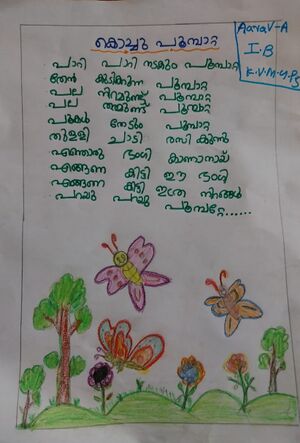 കൊച്ചു പൂമ്പാറ്റ
Aarav-A
I-B
പാറി പാറി നടക്കും പൂമ്പാറ്റ
തേൻ കുടിക്കുന്ന പൂമ്പാറ്റ
പല നിറമുണ്ട് പൂമ്പാറ്റ
പല തരമുണ്ട് പൂമ്പാറ്റ
പൂക്കൾ തേടും പൂമ്പാറ്റ
തുള്ളി ചാടി രസിക്കുന്നു
എന്തൊരു ഭംഗി കാണാനായ്
എങ്ങനെ കിട്ടി ഈ ഭംഗി
എങ്ങനെ കിട്ടി ഇത്ര നിറങ്ങൾ
പറയു പറയു പൂമ്പാറ്റേ......